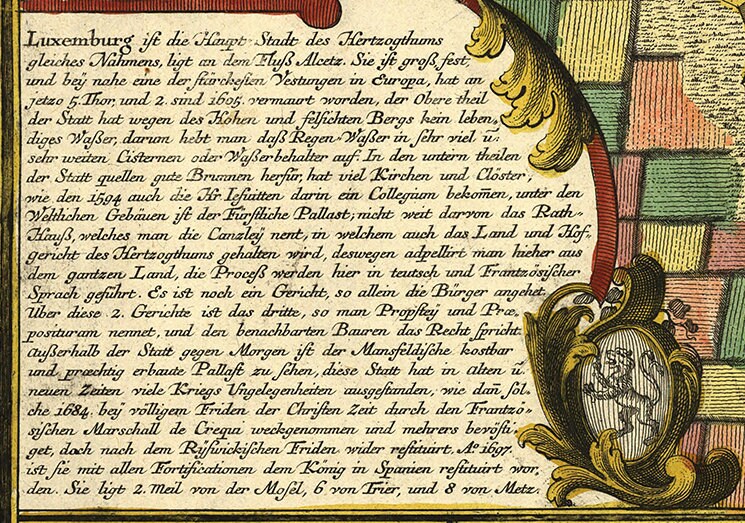 Luxemburg ist die Haupt-Stadt des Hertzogthums
gleiches Nahmens, ligt an dem Fluß Alcetz. Sie ist groß, fest,
und beÿ nahe eine der stärckesten Vestungen in Europa, hat an
jetzo 5. Thor, und 2. sind 1605. vermaurt worden, der Obere theil
der Statt hat wegen des Hohen und felsichten Bergs kein leben,
diges Waßer, darum hebt man daß Regen-Waßer in sehr viel ũ.
sehr weiten Cisternen oder Waßerbehalter auf. In den untern theilen
der Statt quellen gute Brunnen herfür, hat viel Kirchen und Clöster,
wie den 1594 auch die Hr Iesuitten darin ein Collegium bekom̃en, unter den
Weltlichen Gebäuen ist der Fürstliche Pallast; nicht weit darvon das Rath-
Hauß, welches man die Canzleÿ nent, in welchem auch das Land und Hof-
gericht des Hertzogthums gehalten wird, deswegen adpellirt man hieher aus
dem gantzen Land, die Proceß werden hier in teutsch und Frantzösischer
Sprach geführt. Es ist noch ein Gericht, so allein die Bürger angehet.
Uber diese 2. Gerichte ist das dritte, so man Propsteÿ und Præ,
posituram nennet, und den benachbarten Bauren das Recht spricht.
Außerhalb der Statt gegen Morgen ist der Mansfeldische kostbar
und præchtig erbaute Pallast zu sehen, diese Statt hat in alten ũ.
neuen Zeiten viele Kriegs Ungelegenheiten ausgestanden, wie dañ sol-
che 1684. beÿ völligem Friden der Christen Zeit durch den Frantzö-
sischen Marschall de Crequi weckgenommen und mehrers bevösti,
get, doch nach dem Rÿswickischen Friden wider restituirt. Aº. 1697.
ist sie mit allen Fortificationen dem König in Spanien restituirt wor,
den. Sie ligt 2. Meil von der Mosel, 6 von Trier, und 8 von Metz.